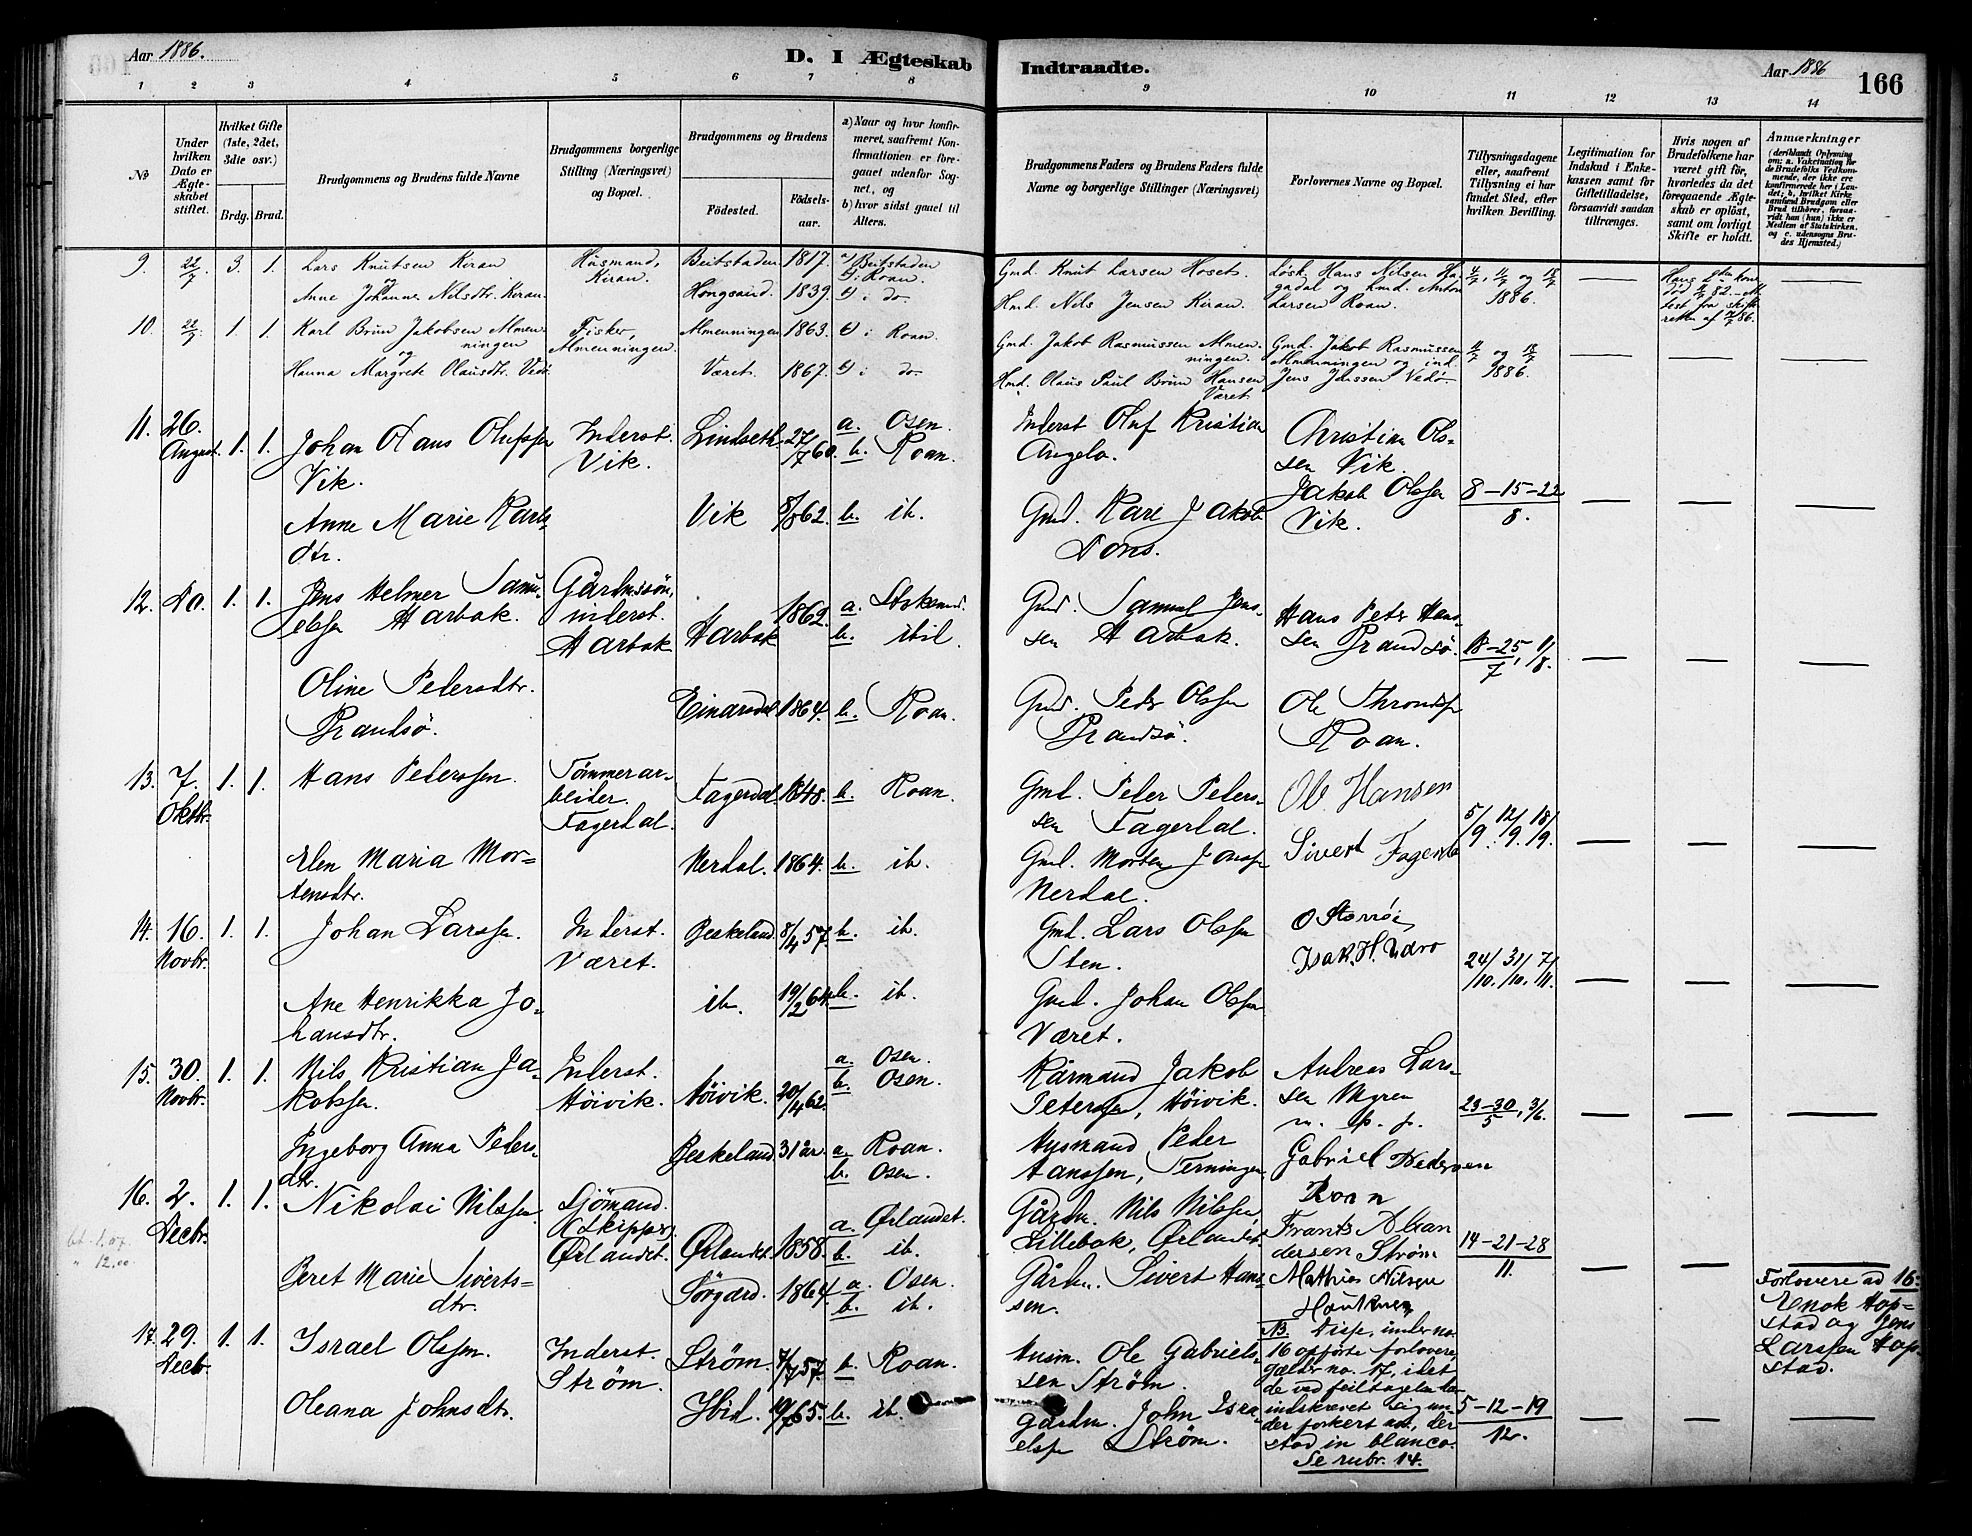 Aar 1886.
D. I Ægteskab Indtraadte.
Aar 1886
166
1 2 3 4 5 6 7 8 9 10 11 12 13 14
No
Under hvilken Dato er Ægteskabet stiftet.
Hvilket Gifte (1ste, 2det, 3die osv.)
Brdg. Brud.
Brudgommens og Brudens fulde Navne
Brudgommens borgerlige Stilling (Næringsvei) og Bopæl.
Brudgommens og Brudens
Födested.
Födselsaar.
a) Naar og hvor konfirmeret, saafremt Konfirmationen er foregaaet udenfor Sognet, og
b) hvor sidst gaaet til Alters.
Brudgommens Faders og Brudens Faders fulde Navne og borgerlige Stillinger (Næringsvei)
Forlovernes Navne og Bopæl.
Tillysningsdagene eller, saafremt Tillysning ei har fundet Sted, efter hvilken Bevilling.
Legitimation for Indskud i Enkekassen samt for Giftetilladelse, forsaavidt saadan tiltrænges.
Hvis nogen af Brudefolkene har været gift för, hvorledes da det foregaaende Ægteskab er oplöst, samt om lovligt Skifte er holdt.
Anmærkninger
(deriblandt Oplysning om: a. Vakcination for de Brudefolks Vedkommende, der ikke ere konfirmerede her i Landet; b. hvilket Kirkesamfund Brudgom eller Brud tilhörer, forsaavidt han (hun) ikke er Medlem af Statskirken, og c. udensogns Brudes Hjemsted.)
9. 22/7. 3. 1. Lars Knutsen Kiran Husmand, Kiran. Beitstaden 1817. a) Beitstaden b) i Roan. Gmd. Knut Larsen Hoset.
og
Anne Johanna Nilsdtr. Kiran. Hongsand. 1839. b) i do. Hmd. Nils Jensen Kiran. Larsen Roan. 1886.
10. 22/7. 1. 1. Karl Brun Jakobsen Almenningen Fisker, Almenningen. Almenningen 1863. b) i Roan. Gmd. Jakob Rasmussen Almenningen. Gmd. Jakob Rasmussen Almenningen og ind. 11/7 og 18/7 1886.
og
Hanna Margrete Olausdtr. Vedø. Været. 1867. b) i do. Hmd. Olaus Paul Brun Hansen Været Jens Jenssen Vedø
11. 26. August. 1. 1. Johan Hans Olufssen Vik. Inderst. Vik. Lindseth 27/7 60. a. Osen. b. Roan. Inderst Oluf Kristian Angelo. Christian Olssen Vik.
Anne Marie Karlsdtr. Vik 8/8 62. b. ib. Gmd. Karl Jakob Dons. Jakob Olssen Vik. 8–15–22 / 8.
12. Do. 1. 1. Jens Helmer Samuelssen Harbak. Gårdmssön, inderst. Harbak Harbak 1862. a. b. Gmd. Samuel Jenssen Harbak. Hans Peter Hanssen Brandsö. 18–25/7, 1/8.
Oline Pedersdtr. Brandsö. Einarsdal 1864. b. Roan. Gmd. Peder Olssen Brandsö. Ole Throndsen Roan.
13. 7. Oktbr. 1. 1. Hans Peterssen. Tömmerarbeider. Fagerdal. Fagerdal 1848. b. Roan. Gmd. Peter Peterssen Fagerdal. Ole Hansen 5/9. 12/9. 18/9.
Elen Maria Mortensdtr. Nerdal. 1864. b. ib. Gmd. Morten Nerdal. Sivert Fagerdal
14. 16. Novbr. 1. 1. Johan Larssen. Inderst. Været. Beskeland. 8/4 57. b. ib. Gmd. Lars Olssen Sten. O Storrøe Isak. H. Udro 24/10. 31/10. 7/11.
Ane Henrikka Johansdtr. ib. 19/2 64. b. ib. Gmd. Johan Olssen Været.
15. 30. Novbr. 1. 1. Nils Kristian Jakobssen. Inderst. Höivik. Höivik. 20/4 62. a. Osen. b. Osen. Kårmand Jakob Peterssen, Höivik. Andreas Larssen Myren m. p. p. 23–30/5, 3/6.
Ingeborg Anna Pedersdtr. Beskeland. 31 år a. Roan. b. Osen. Husmand Peder Hanssen, Terningen. Gabriel Pedersen Roan
16. 2. Decbr. 1. 1. Nikolai Nilssen. Sjömand. (Skipper) Ørlandet. Ørlandet 1858. a. Ørlandet. b. ib. Gårdm. Nils Nilssen, Lillebak, Ørlandet. Frants Alexandersen Strøm 14–21–28 / 11.
Beret Marie Sivertsdtr. Sörgård. 1864. a. Osen. b. ib. Gårdm. Sivert Hanssen. Mathias Nilsen
Forlovere ad 16: Enok Hopstad og Jens Larssen Hopstad.
17. 29. Decbr. 1. 1. Israel Olssen. Inderst. Ström. Ström. 7/7 57. b. Roan. Husm. Ole Gabrielssen Ström. NB. Disse, under no. 16 opförte forlovere gælder no. 17, idet de ved feiltagelse indskrevet sig under forkert stad in blanco. Se rubr. 14.
Oleana Johnsdtr. Ibid. 65. b. ib. Gårdm. John Israelssen Ström. 5–12–19 / 12.